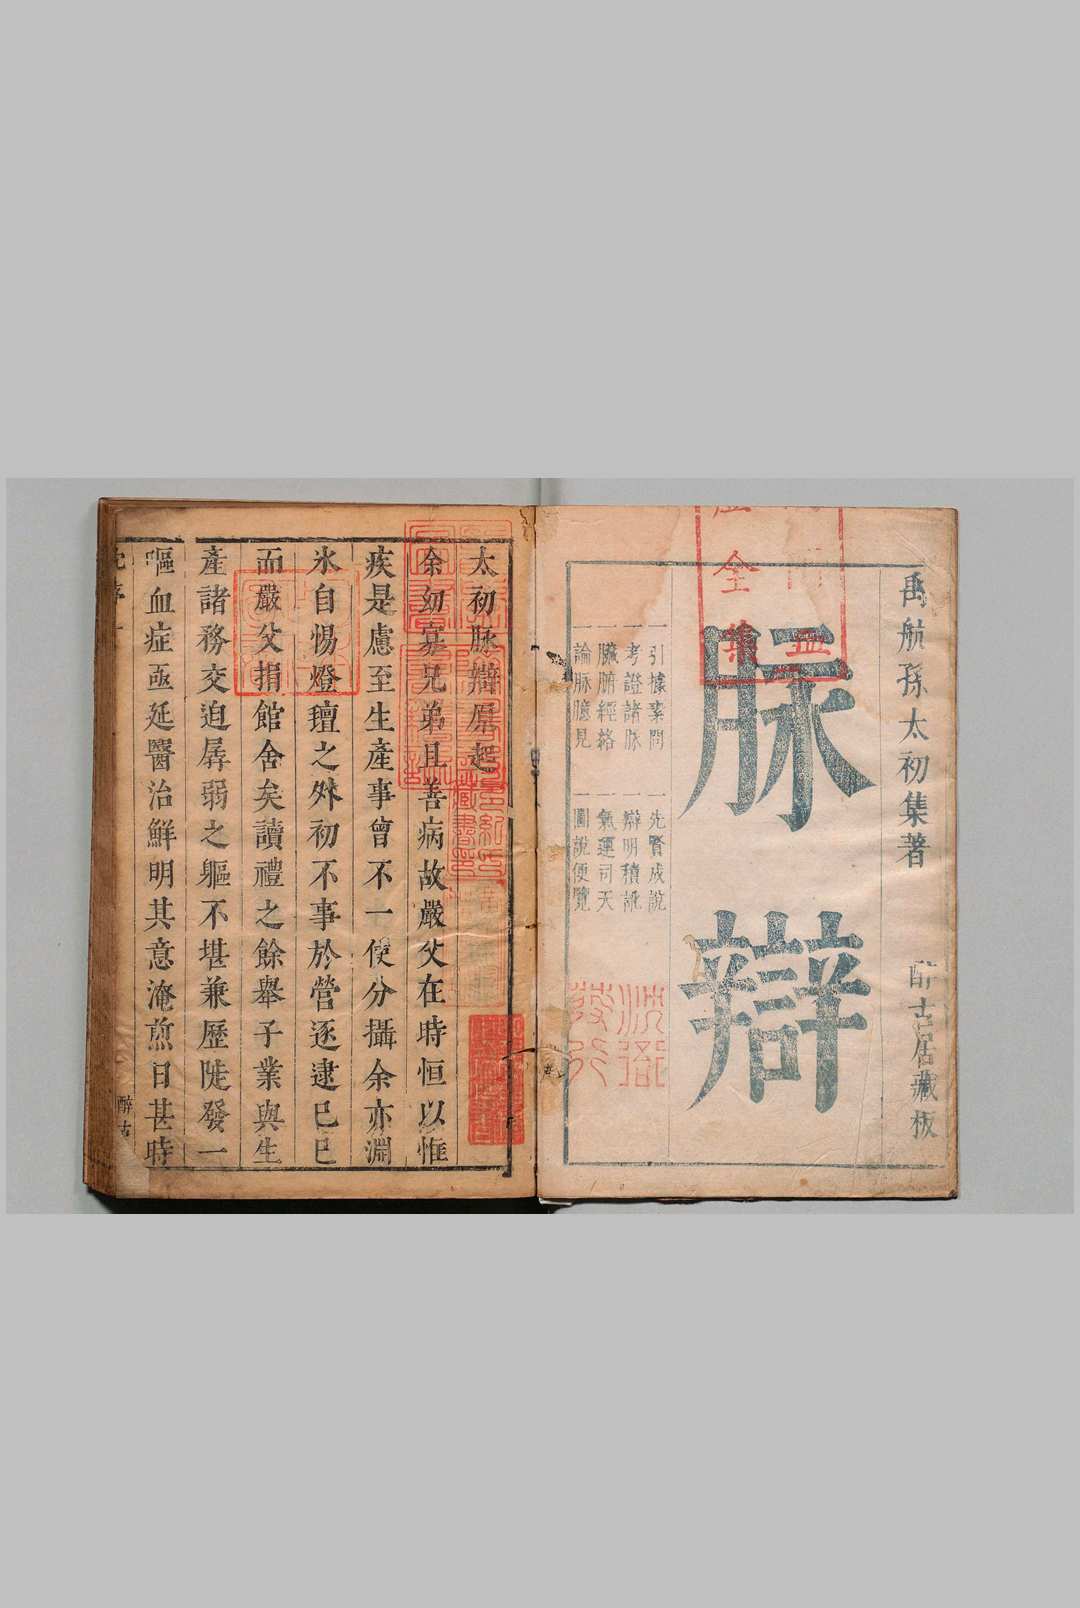 禹航孫太初集著
酔古居藏板
脉辯
一引據素問
一考證諸脉
一臟腑經絡
一論脉臆見
一先賢成說
一辯明積訛
一氣運司天
一圖說便覽
全集
發行
太初脉辯原起
余幼寡兄弟且善病故嚴父在時恒以惟
疾是慮至生產事曾不一使分攝余亦淵
氷自惕燈壇之外初不事於營逐逮己巳
而嚴父捐館舍矣讀禮之餘舉子業與生
產諸務交迫孱弱之軀不堪兼歷陡發一
嘔血症亟延醫治鮮明其意淹煎日甚時